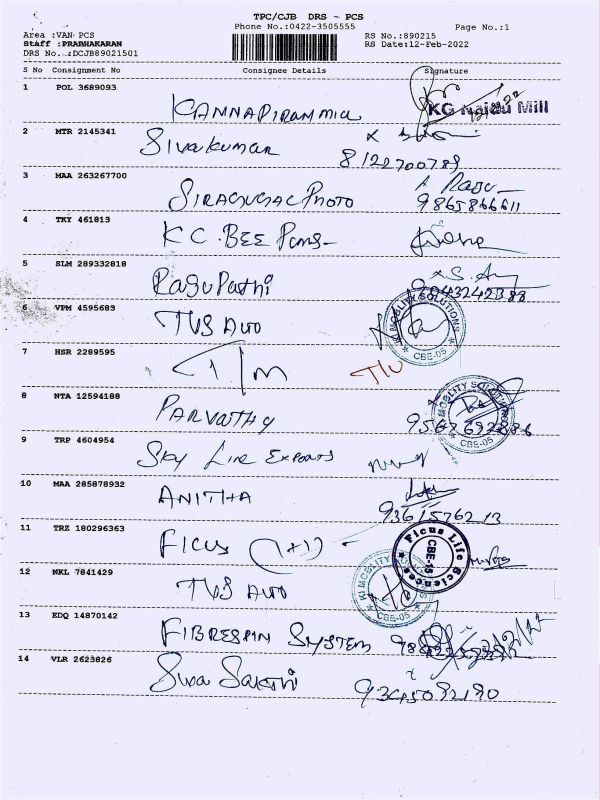 TPC/CJB DRS - PCS
Phone No.:0422-3505555
Page No.:1
Area :VAN PCS
RS No.:890215
Staff :PRABHAKARAN
RS Date:12-Feb-2022
DRS No..:DCJB89021501
S No Consignment No Consignee Details Signature
1 POL 3689093
KANNAPIRAN MILL
KG Naidu Mill
2 MTR 2145341
Sivakumar
8122700789
3 MAA 263267700
A Raju
9865866611
4 TKY 461813
K C. BEE
5 SLM 289332818
Ragupathi
6 VPM 4595683
TVS Auto
KI MOBILITY SOLUTIONS
CBE-05
7 HSR 2289595
T/M
8 NTA 12594188
PARVATHY
KI MOBILITY SOLUTIONS
CBE-05
9 TRP 4604954
Sky Line Exports
10 MAA 285878932
ANITHA
11 TRZ 180296363
FICUS (1+1)
Ficus Life Sciences
CBE-15
12 NKL 7841429
TVS Auto
KI MOBILITY SOLUTIONS
CBE-05
13 EDQ 14870142
FIBRESPIN SYSTEM
14 VLR 2623826
Siva Sakthi
9345092190